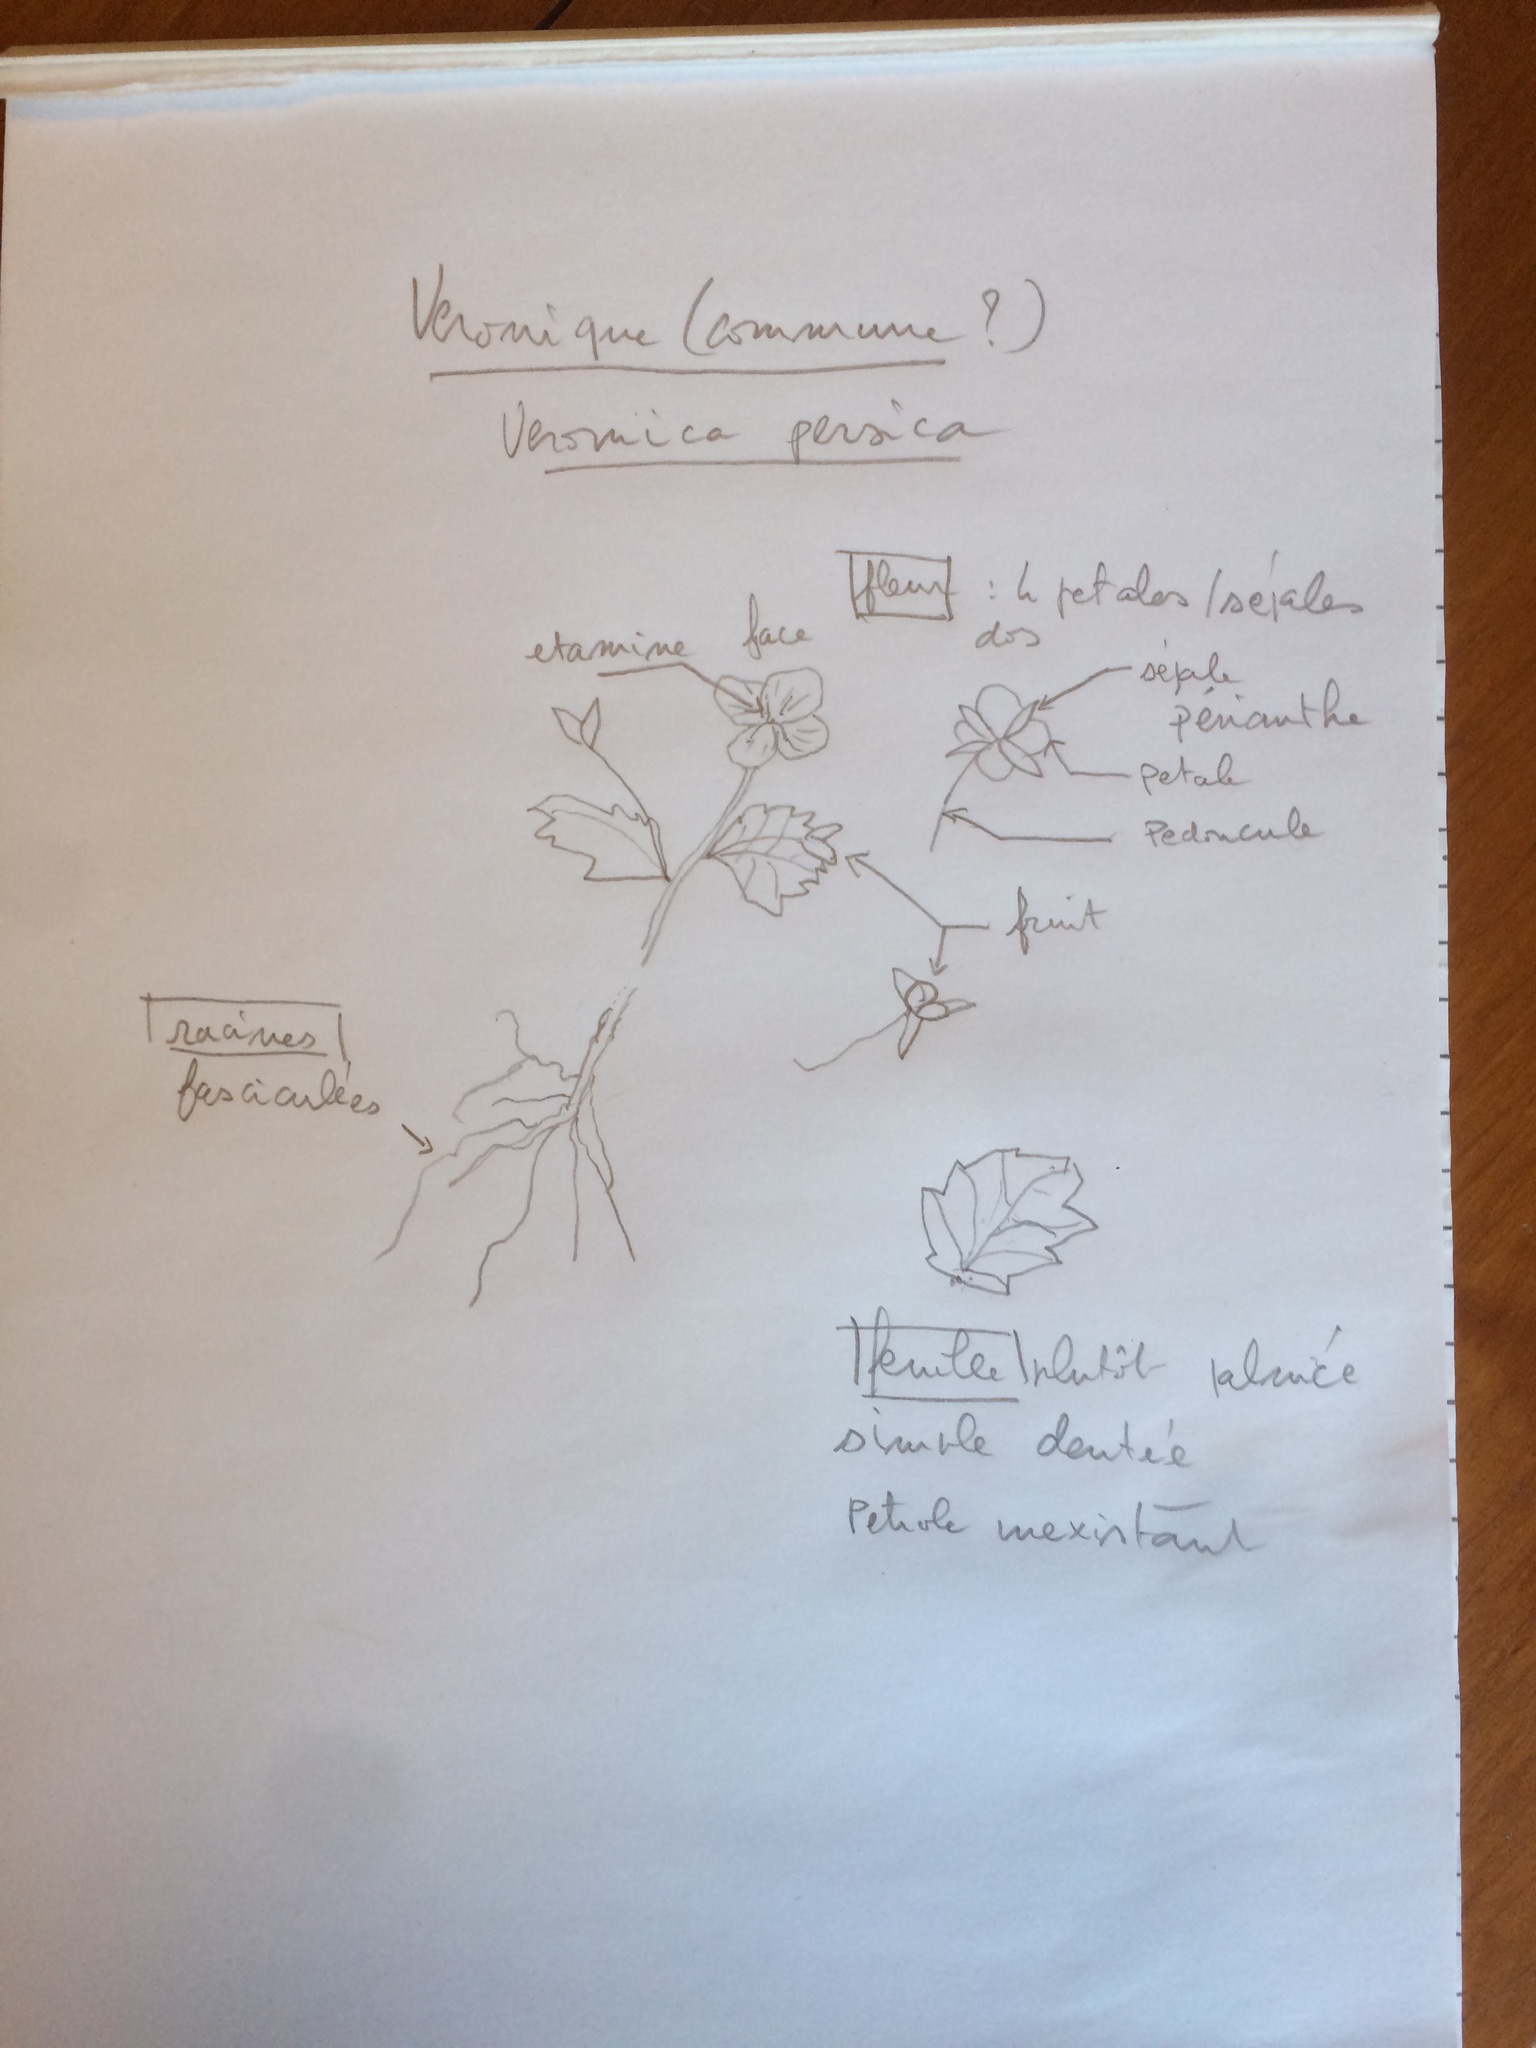 Veronique (commune ?)
Veronica persica
fleur : 4 petales / sépales
etamine face dos
sépale
périanthe
petale
Pedoncule
fruit
racines
fasciculées
feuille plutôt palmée
simple dentée
Petiole inexistant